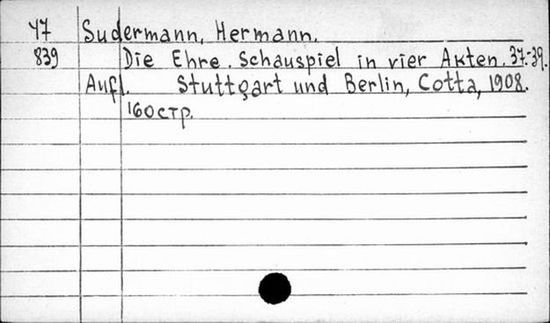 47 Sudermann, Hermann.
839 Die Ehre. Schauspiel in vier Akten. 37.-39.
Aufl. Stuttgart und Berlin, Cotta, 1908.
160 стр.